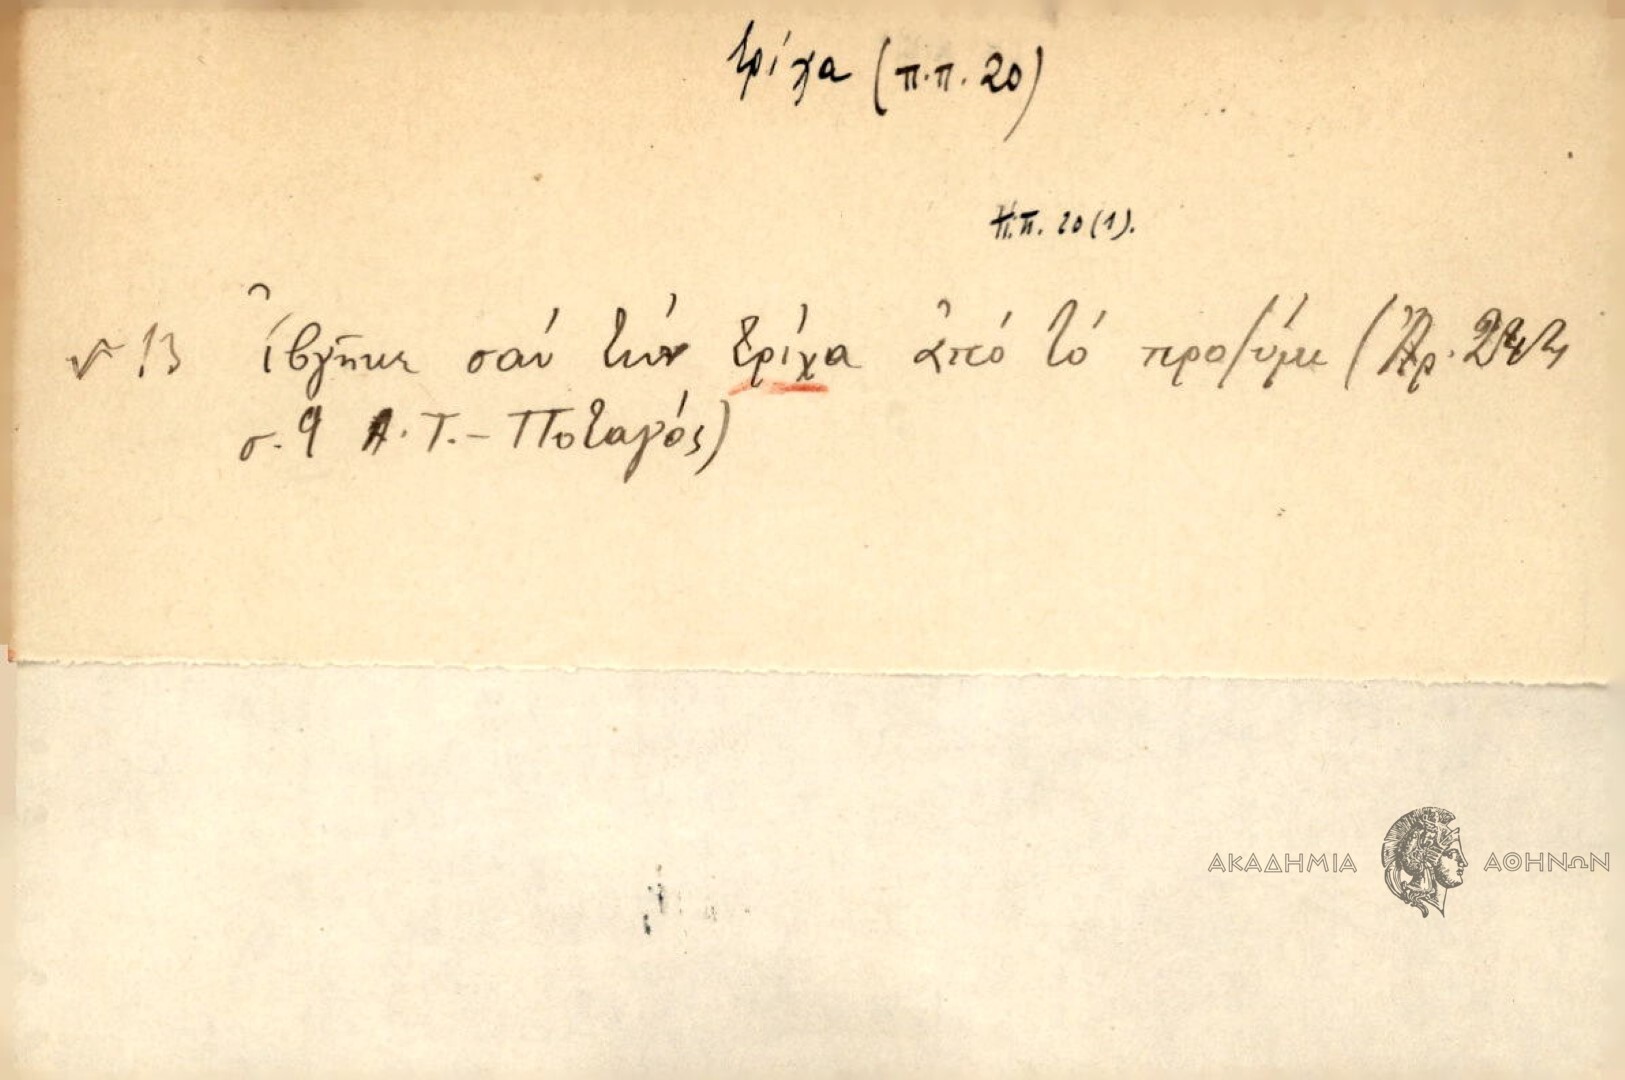 τρίχα (π.π. 20)
π.π. 20 (1).
13 ἐβγῆκε σάν τήν τρίχα ἀπό τό προζύμι (Ἀρ.
σ. 9 Α. Τ. – Ποταμός)
ΑΚΑΔΗΜΙΑ ΑΘΗΝΩΝ